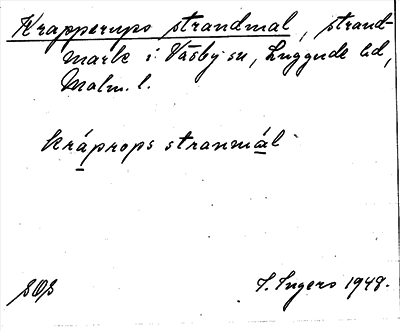 Krapperups strandmal, strand-
mark i Väsby sn, Luggude hd,
Malm. l.
kråprops stranmål
SOS
I. Ingers 1948.